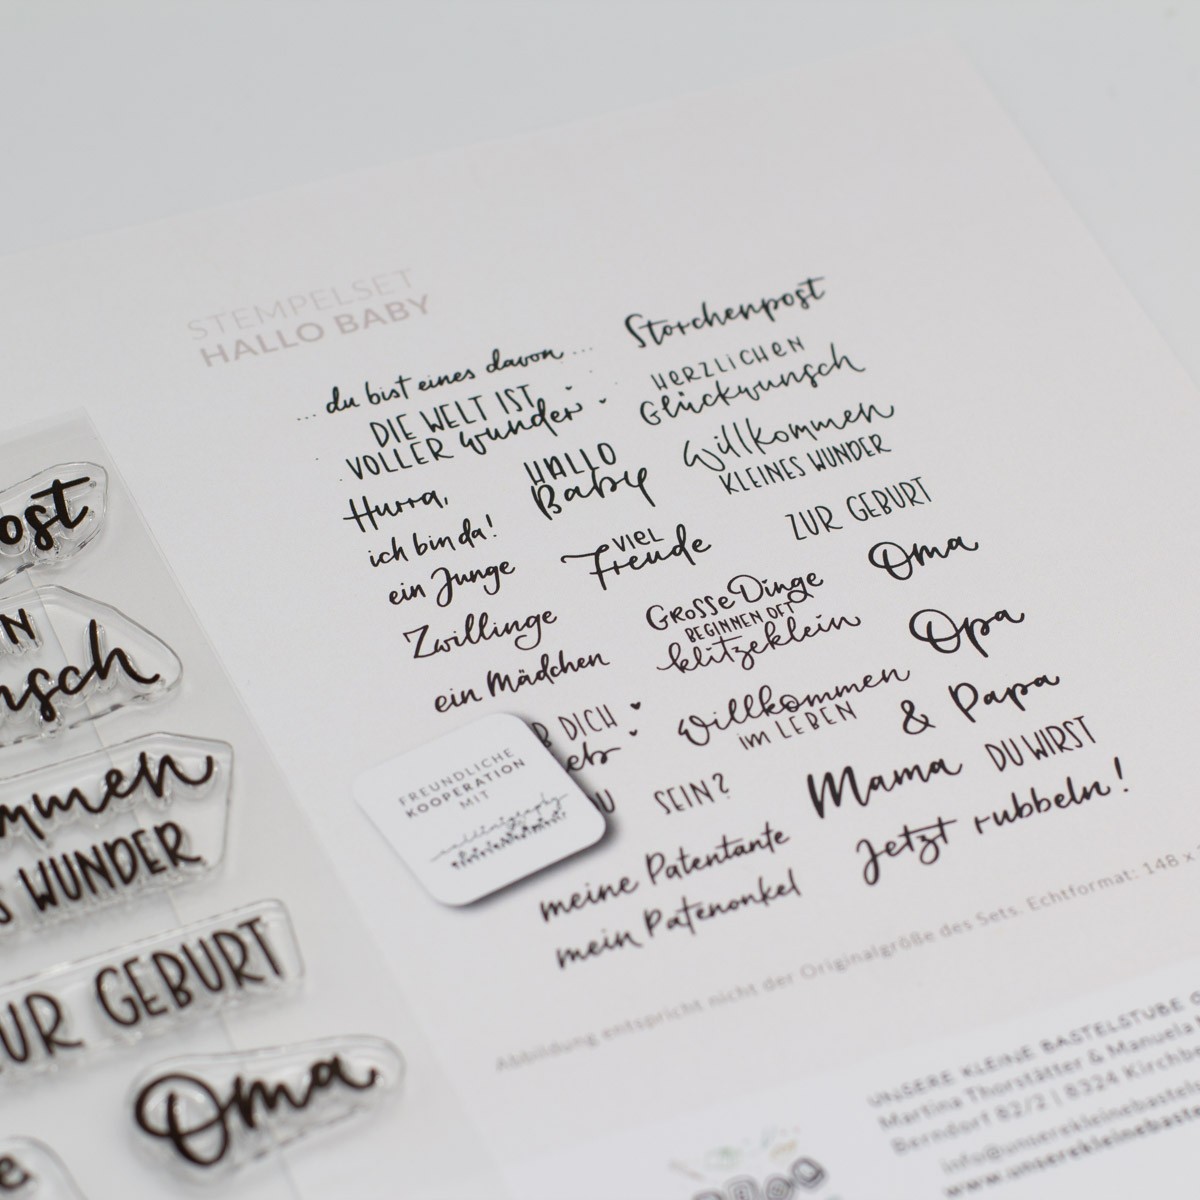 STEMPELSET
HALLO BABY
... du bist eines davon ...
DIE WELT IST
VOLLER wunder
Storchenpost
HERZLICHEN
Glückwunsch
Hurra,
ich bin da!
HALLO
Baby
Willkommen
KLEINES WUNDER
ein Junge
VIEL
Freude
ZUR GEBURT
Zwillinge
GROSSE Dinge
BEGINNEN OFT
klitzeklein
Oma
ein Mädchen
Opa
DICH
Willkommen
im LEBEN
& Papa
SEIN?
Mama
DU WIRST
meine Patentante
mein Patenonkel
Jetzt rubbeln!
FREUNDLICHE
KOOPERATION
MIT
Abbildung entspricht nicht der Originalgröße des Sets. Echtformat: 148 x
UNSERE KLEINE BASTELSTUBE
Martina Thorstätter & Manuela
Berndorf 82/2 | 8324 Kirchb
info@unserekleinebastels
www.unserekleinebaste
ost
N
nsch
mmen
S WUNDER
UR GEBURT
Oma
e